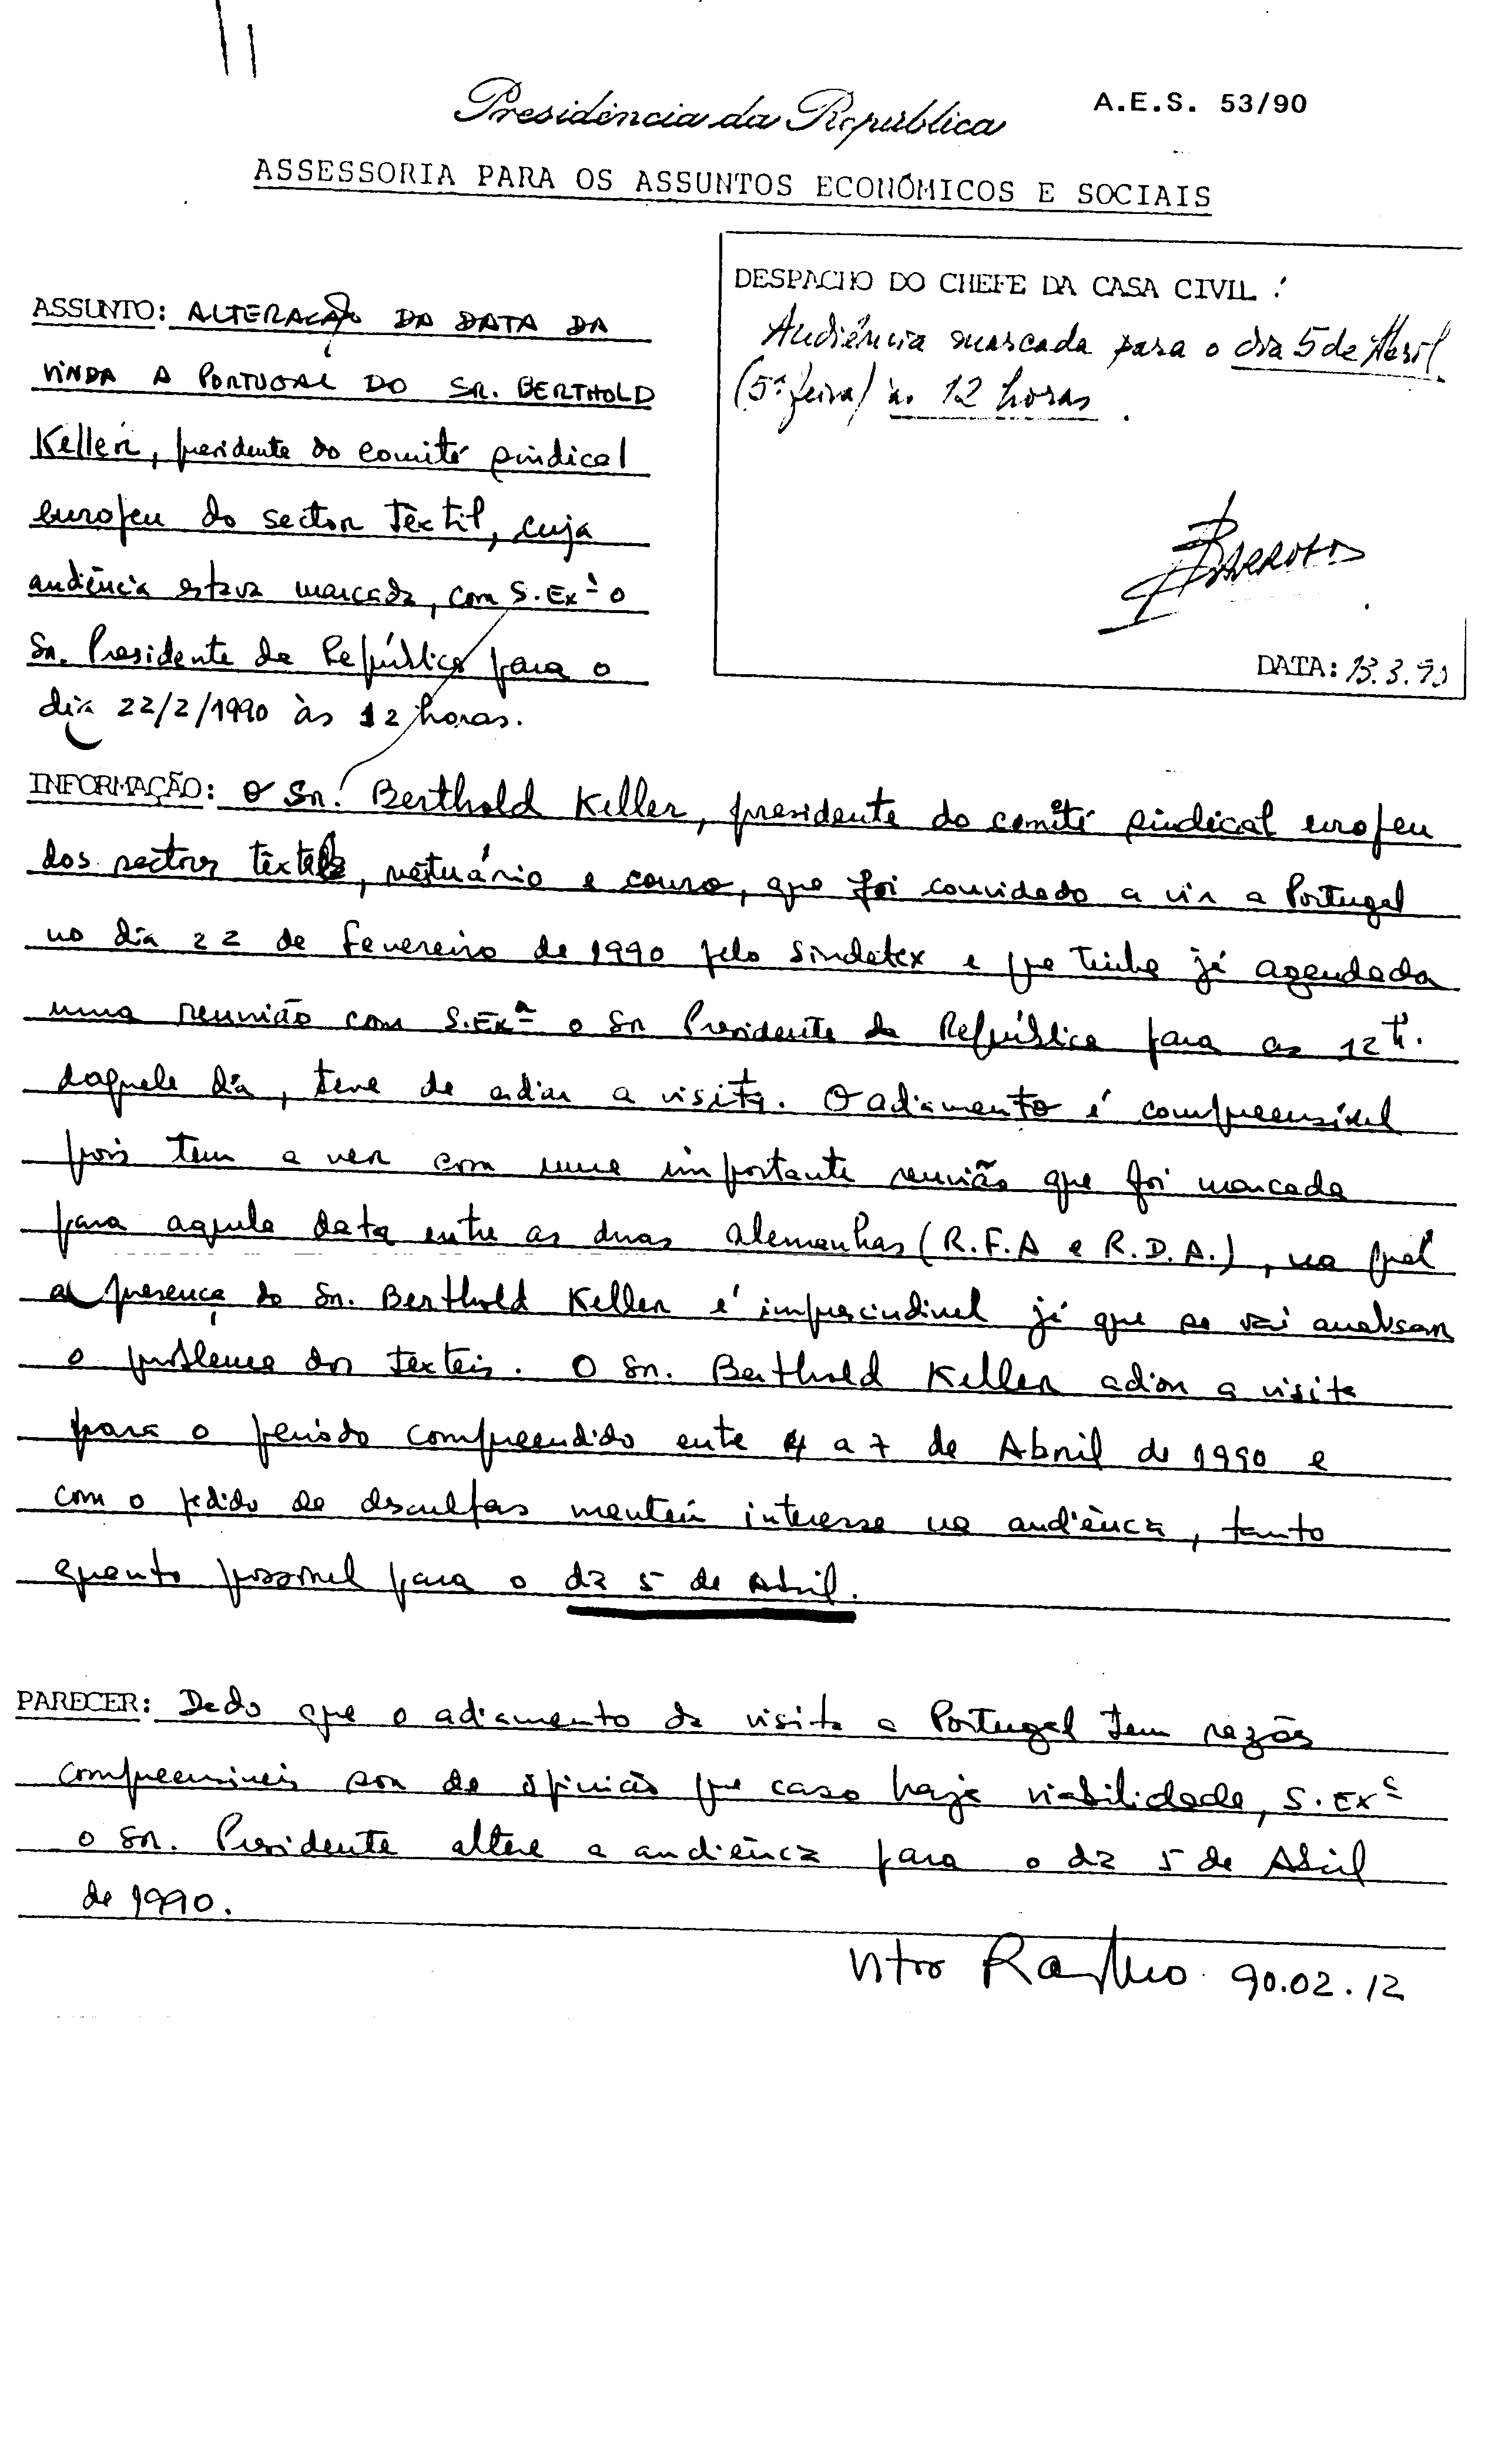 Presidência da República
A.E.S. 53/90
ASSESSORIA PARA OS ASSUNTOS ECONÓMICOS E SOCIAIS
DESPACHO DO CHEFE DA CASA CIVIL :
Audiência marcada para o dia 5 de Abril
(5ª feira) às 12 horas.
Barroso
DATA: 13.3.90
ASSUNTO: ALTERAÇÃO DA DATA DA
VINDA A PORTUGAL DO SR. BERTHOLD
Keller, presidente do comité sindical
europeu do sector Têxtil, cuja
audiência estava marcada, com S.Exª o
Sr. Presidente da República para o
dia 22/2/1990 às 12 horas.
INFORMAÇÃO: O Sr. Berthold Keller, presidente do comité sindical europeu
dos sectores têxteis, vestuário e couro, que foi convidado a vir a Portugal
no dia 22 de Fevereiro de 1990 pelo Sindetex e que tinha já agendada
uma reunião com S.Exª o Sr Presidente da República para as 12 h.
daquele dia, teve de adiar a visita. O adiamento é compreensível
pois tem a ver com uma importante reunião que foi marcada
para aquela data entre as duas Alemanhas (R.F.A e R.D.A.), na qual
a presença do Sr. Berthold Keller é imprescindível já que se vai analisar
o problema dos texteis. O Sr. Berthold Keller adiou a visita
para o período compreendido ente 4 a 7 de Abril de 1990 e
com o pedido de desculpas mantém interesse na audiência, tanto
quanto possível para o dia 5 de Abril.
PARECER: Dado que o adiamento da visita a Portugal tem razões
compreensíveis sou de opinião que caso haja viabilidade, S.Exª
o Sr. Presidente altere a audiência para o dia 5 de Abril
de 1990.
Vítor Ramalho 90.02.12